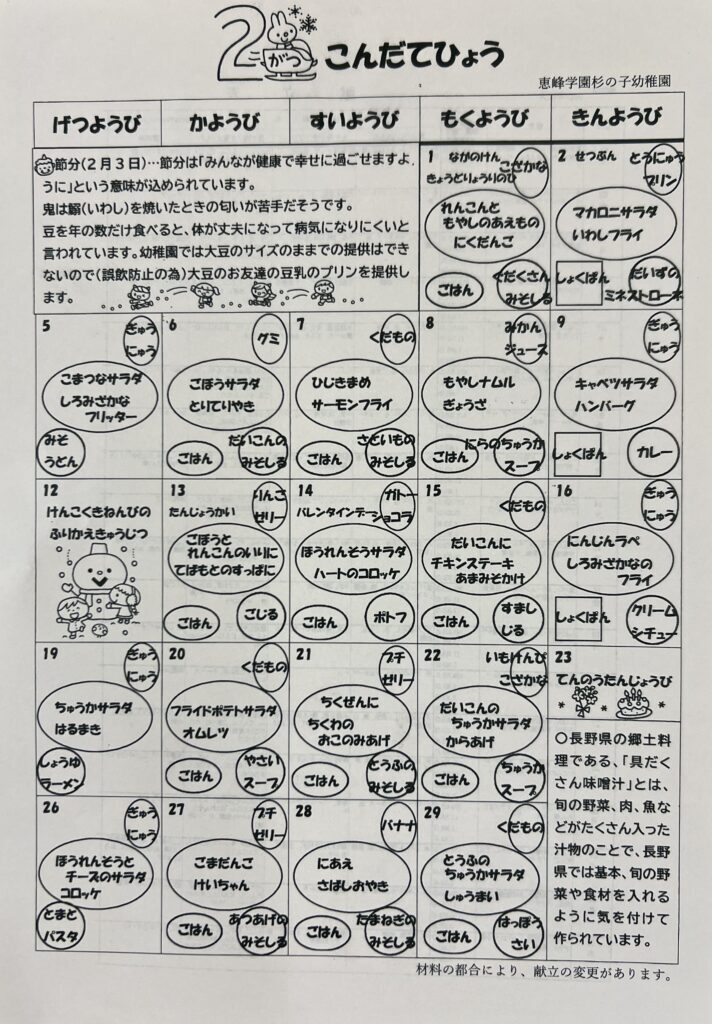 2がつ こんだてひょう
恵峰学園杉の子幼稚園
げつようび かようび すいようび もくようび きんようび
節分(2月3日)…節分は「みんなが健康で幸せに過ごせますよ
うに」という意味が込められています。
鬼は鰯(いわし)を焼いたときの匂いが苦手だそうです。
豆を年の数だけ食べると、体が丈夫になって病気になりにくいと
言われています。幼稚園では大豆のサイズのままでの提供はでき
ないので(誤飲防止の為)大豆のお友達の豆乳のプリンを提供し
ます。
1 ながのけん
きょうどりょうりのひ
こざかな
れんこんと
もやしのあえもの
にくだんご
ごはん
ぐだくさん
みそしる
2 せつぶん
とうにゅう
プリン
マカロニサラダ
いわしフライ
しょくぱん
だいずの
ミネストローネ
5
ぎゅう
にゅう
こまつなサラダ
しろみざかな
フリッター
みそ
うどん
6
グミ
ごぼうサラダ
とりてりやき
ごはん
だいこんの
みそしる
7
くだもの
ひじきまめ
サーモンフライ
ごはん
さといもの
みそしる
8
みかん
ジュース
もやしナムル
ぎょうざ
ごはん
にらのちゅうか
スープ
9
ぎゅう
にゅう
キャベツサラダ
ハンバーグ
しょくぱん
カレー
12
けんこくきねんびの
ふりかえきゅうじつ
13
たんじょうかい
りんご
ゼリー
ごぼうと
れんこんのいりに
てばもとのすっぱに
ごはん
ごじる
14
バレンタインデー
ガトー
ショコラ
ほうれんそうサラダ
ハートのコロッケ
ごはん
ポトフ
15
くだもの
だいこんに
チキンステーキ
あまみそかけ
ごはん
すまし
じる
16
ぎゅう
にゅう
にんじんラペ
しろみざかなの
フライ
しょくぱん
クリーム
シチュー
19
ぎゅう
にゅう
ちゅうかサラダ
はるまき
しょうゆ
ラーメン
20
くだもの
フライドポテトサラダ
オムレツ
ごはん
やさい
スープ
21
プチ
ゼリー
ちくぜんに
ちくわの
おこのみあげ
ごはん
とうふの
みそしる
22
いもけんぴ
こざかな
だいこんの
ちゅうかサラダ
からあげ
ごはん
ちゅうか
スープ
23
てんのうたんじょうび
〇長野県の郷土料
理である、「具だく
さん味噌汁」とは、
旬の野菜、肉、魚な
どがたくさん入った
汁物のことで、長野
県では基本、旬の野
菜や食材を入れる
ように気を付けて
作られています。
26
ぎゅう
にゅう
ほうれんそうと
チーズのサラダ
コロッケ
とまと
パスタ
27
プチ
ゼリー
ごまだんご
けいちゃん
ごはん
あつあげの
みそしる
28
バナナ
にあえ
さばしおやき
ごはん
たまねぎの
みそしる
29
くだもの
とうふの
ちゅうかサラダ
しゅうまい
ごはん
はっぽう
さい
材料の都合により、献立の変更があります。